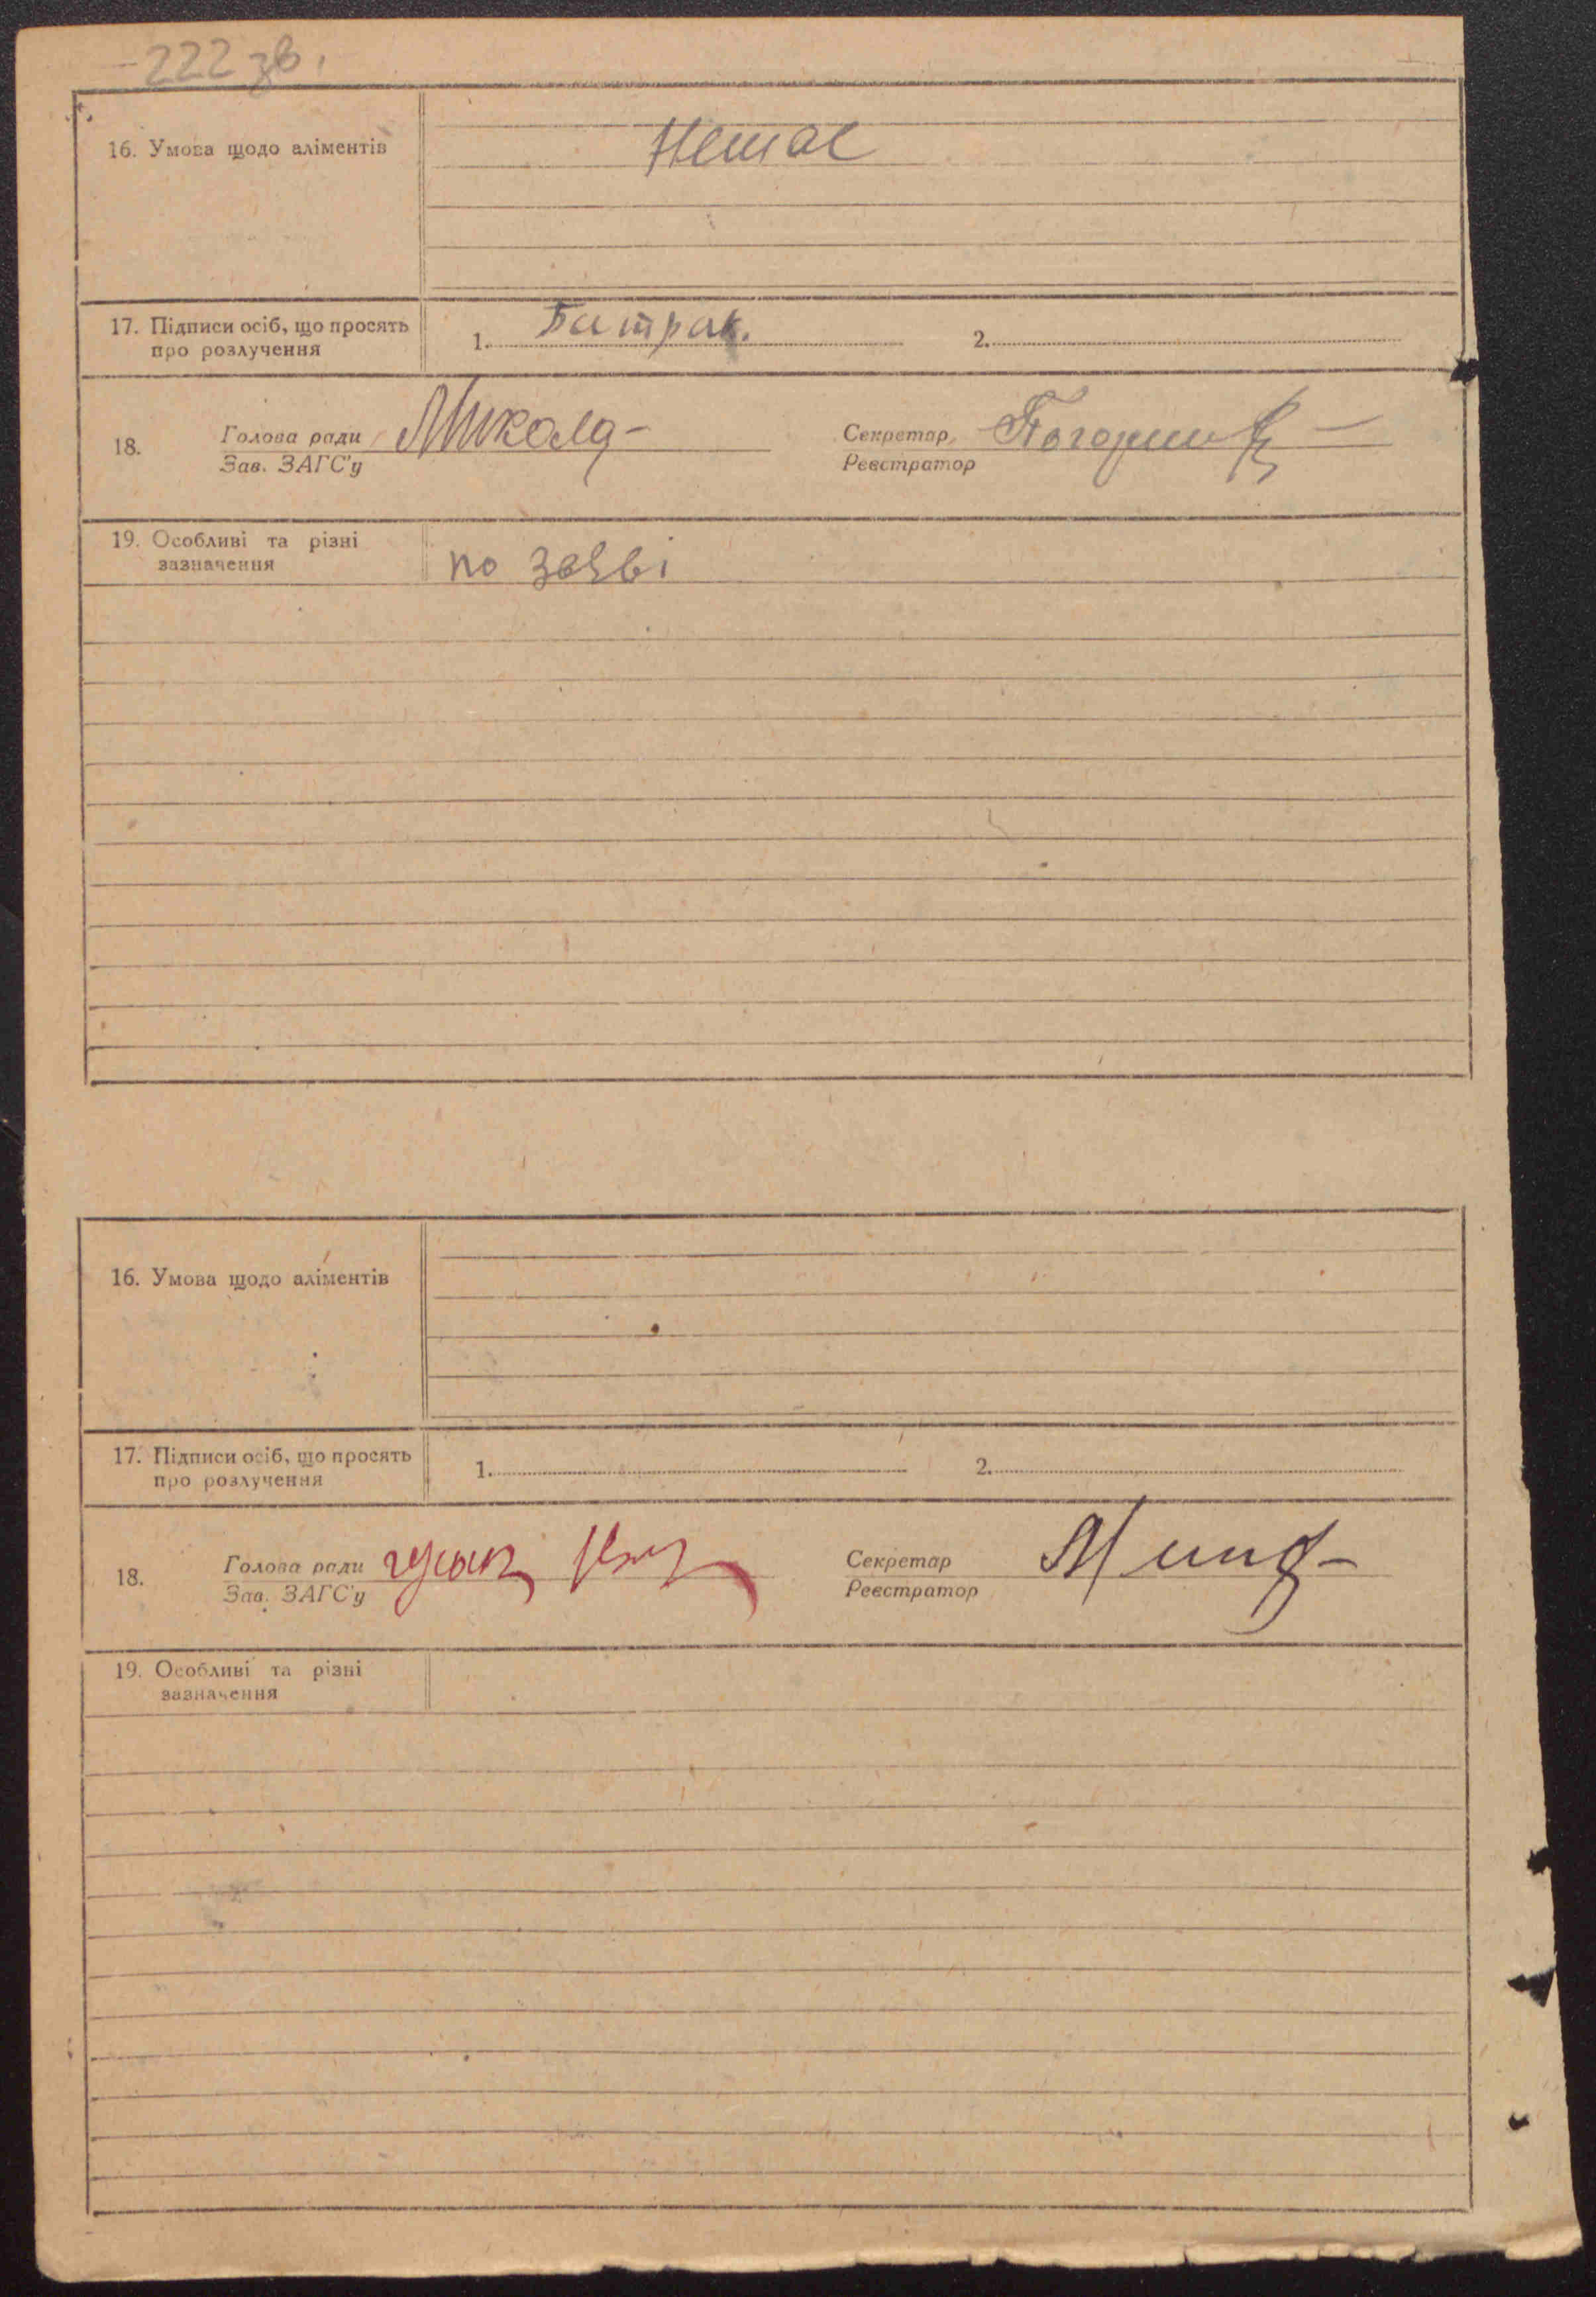 222 зв.
16. Умова щодо аліментів
Немає
17. Підписи осіб, що просять
про розлучення
1. Батрак. 2.
18. Голова ради Микола Секретар
Зав. ЗАГС'у Реєстратор
19. Особливі та різні
зазначення
по заяві
16. Умова щодо аліментів
17. Підписи осіб, що просять
про розлучення
1. 2.
18. Голова ради Секретар
Зав. ЗАГС'у Реєстратор
19. Особливі та різні
зазначення